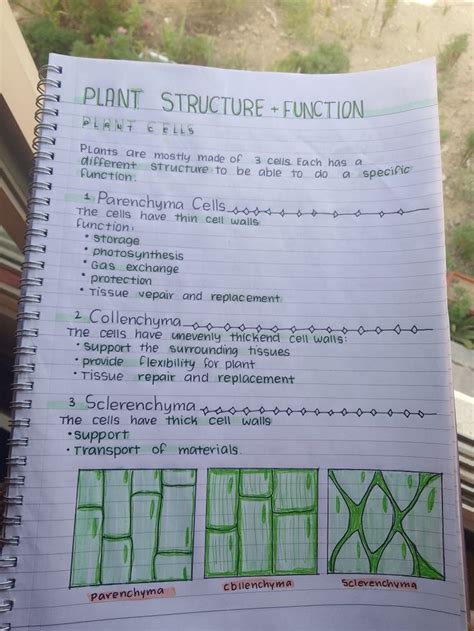 PLANT STRUCTURE + FUNCTION
PLANT CELLS
Plants are mostly made of 3 cells. Each has a
different structure to be able to do a specific
function.
1 Parenchyma Cells
The cells have thin cell walls
function:
• storage
• photosynthesis
• Gas exchange
• protection
• Tissue repair and replacement
2 Collenchyma
The cells have unevenly thickend cell walls:
• support the surrounding tissues
• provide flexibility for plant
• Tissue repair and replacement
3 Sclerenchyma
The cells have thick cell walls
• support
• Transport of materials.
parenchyma collenchyma sclerenchyma